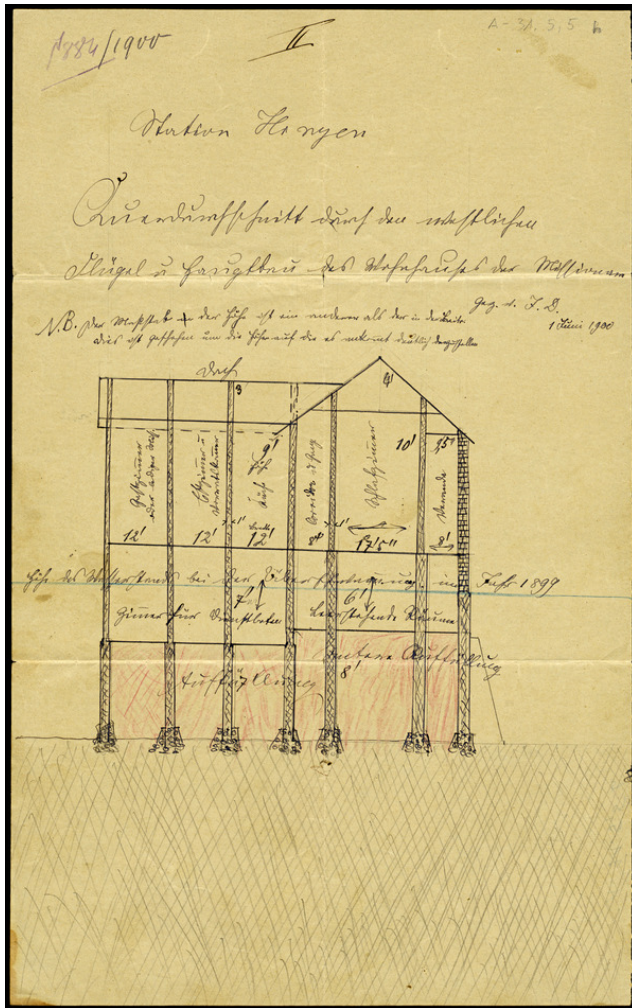 1884/1900
II
A-31.5,5 b
Station Honyen
Querdurchschnitt durch den westlichen
Flügel u Hauptbau des Wohnhauses der Missionare
Gez. v. J. D.
1 Juni 1900
N.B. Der Maßstab in der Höhe ist ein anderer als der in der Breite.
dies ist geschehen um die Höhe auf die es ankommt deutlich darzustellen
Dach
3
4'
Gastzimmer
oder lediger Miss.
Esszimmer u
9'
Corridor
Schlafzimmer
10'
Veranda
12'
12'
12'
8'
17'5"
8'
Höhe des Wasserstands bei der Überschwemmung im Jahr 1899
7'
6'
Zimmer für Dienstboten
Leerstehende Räume
Auffüllung
untere Auffüllung
8'